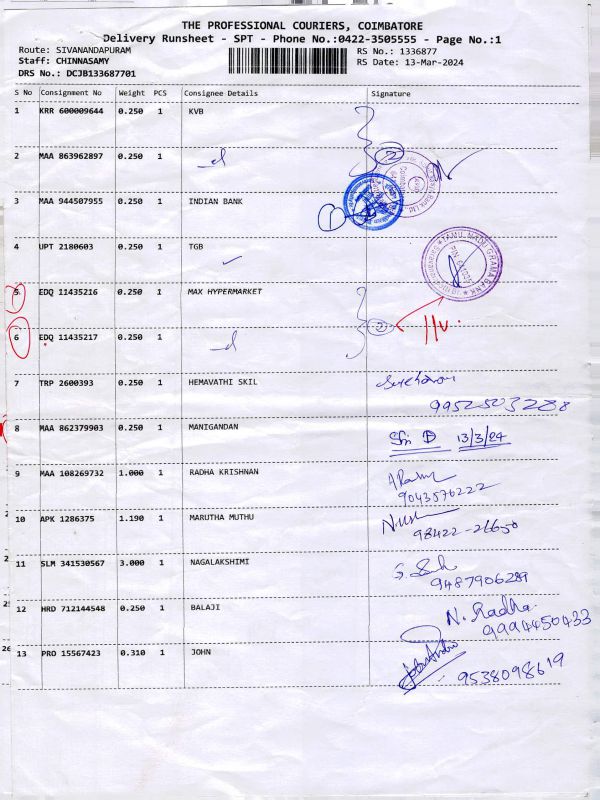 THE PROFESSIONAL COURIERS, COIMBATORE
Delivery Runsheet - SPT - Phone No.:0422-3505555 - Page No.:1
Route: SIVANANDAPURAM
RS No.: 1336877
Staff: CHINNASAMY
RS Date: 13-Mar-2024
DRS No.: DCJB133687701
S No Consignment No Weight PCS Consignee Details Signature
1 KRR 600009644 0.250 1 KVB
2 MAA 863962897 0.250 1
2
3 MAA 944507955 0.250 1 INDIAN BANK
1
4 UPT 2180603 0.250 1 TGB
TAMIL NADU GRAMA BANK
5 EDQ 11435216 0.250 1 MAX HYPERMARKET
2
6 EDQ 11435217 0.250 1
7 TRP 2600393 0.250 1 HEMAVATHI SKIL
9952503288
8 MAA 862379903 0.250 1 MANIGANDAN
13/3/24
9 MAA 108269732 1.000 1 RADHA KRISHNAN
9043576222
10 APK 1286375 1.190 1 MARUTHA MUTHU
98422-26650
11 SLM 341530567 3.000 1 NAGALAKSHIMI
9487906289
12 HRD 712144548 0.250 1 BALAJI
N. Radha
9994450433
13 PRO 15567423 0.310 1 JOHN
9538098619